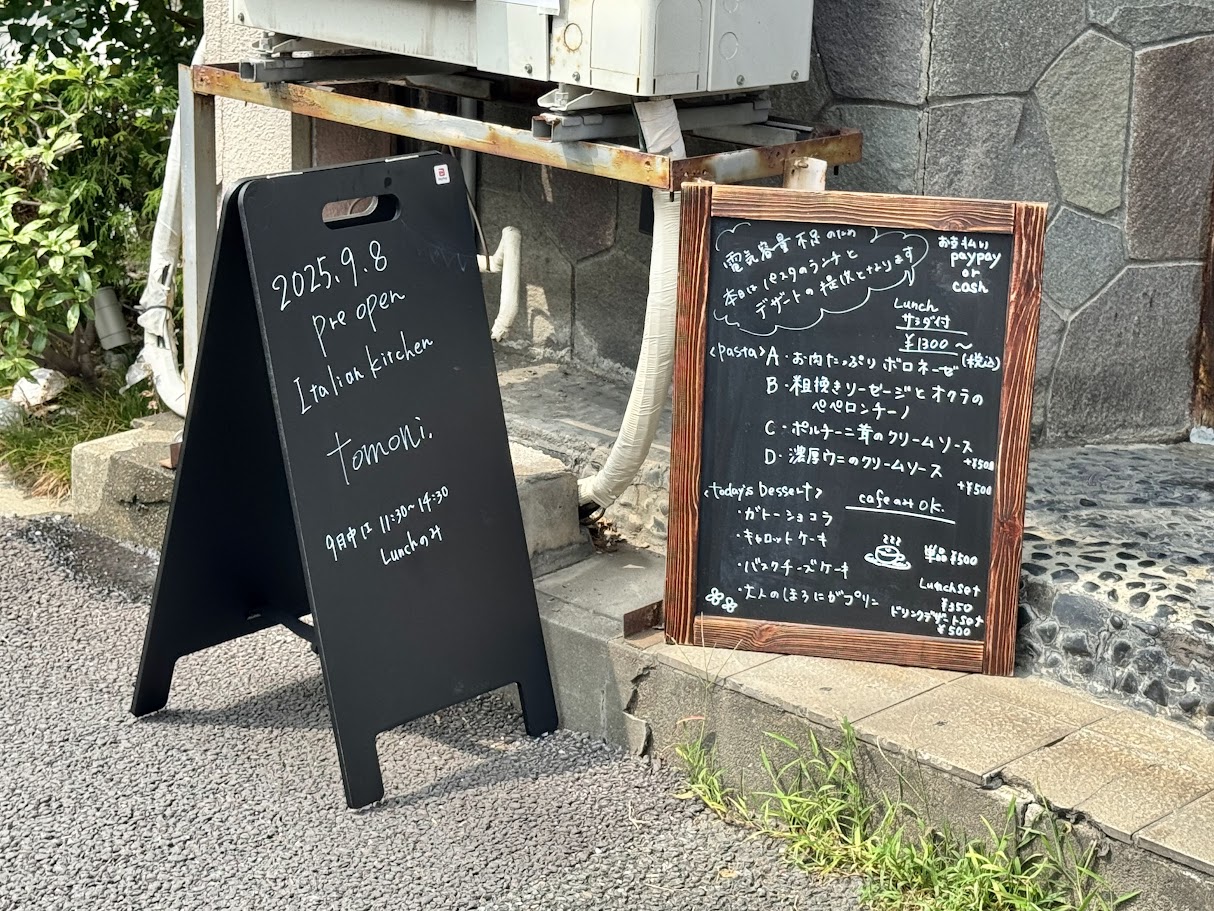 2025.9.8
pre open
Italian kitchen
tomoni.
9月中は 11:30~14:30
Lunchのみ
電気容量不足のため
本日はパスタのランチと
デザートの提供となります
お支払い
paypay
or
cash
Lunch
サラダ付
¥1300~
(税込)
<pasta> A・お肉たっぷりボロネーゼ
B・粗挽きソーセージとオクラの
ペペロンチーノ
C・ポルチーニ茸のクリームソース
+¥500
D・濃厚ウニのクリームソース
+¥500
<today's Dessert>
・ガトーショコラ
・キャロットケーキ
・バスクチーズケーキ
・大人のほろにがプリン
cafeのみ OK.
単品¥500
Lunchset
¥350
ドリンクデザートset
¥500